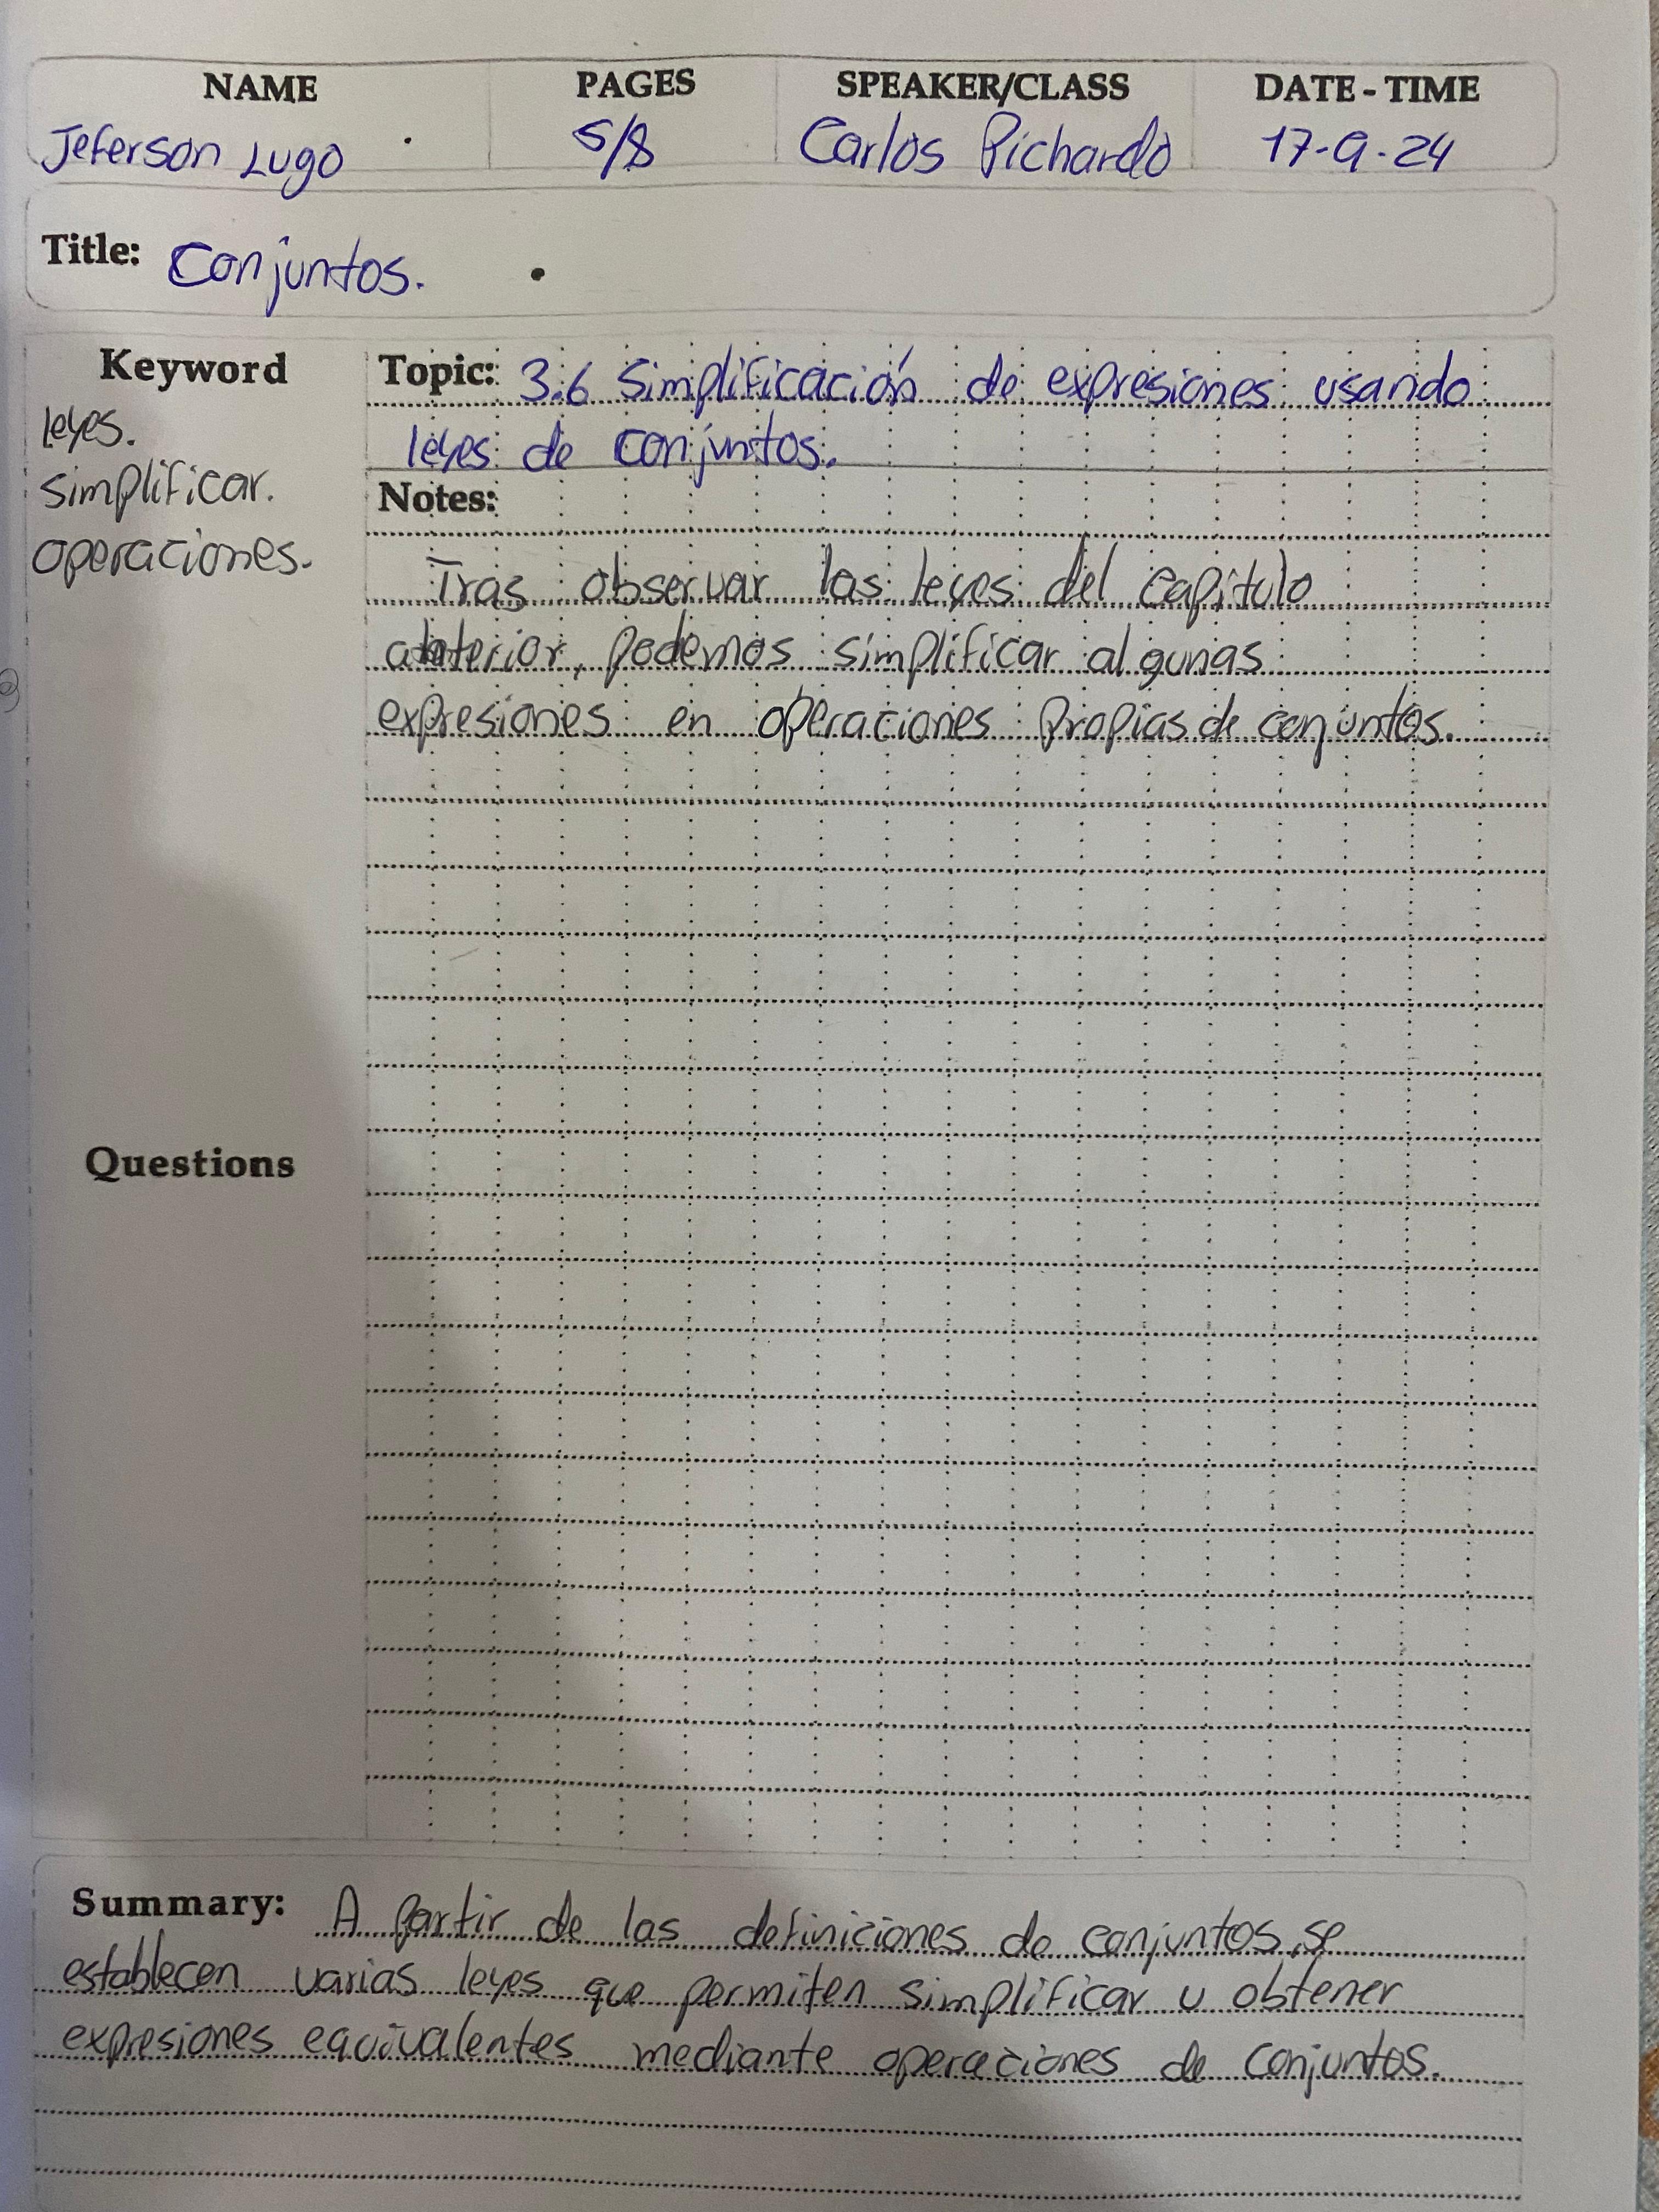 NAME PAGES SPEAKER/CLASS DATE - TIME
Jeferson Lugo 5/8 Carlos Pichardo 17-9-24
Title: Conjuntos.
Keyword
leyes.
simplificar.
operaciones.
Topic: 3.6 Simplificación de expresiones usando
leyes de conjuntos.
Notes:
Tras observar las leyes del capítulo
anterior, podemos simplificar algunas
expresiones en operaciones propias de conjuntos.
Questions
Summary: A partir de las definiciones de conjuntos, se
establecen varias leyes que permiten simplificar u obtener
expresiones equivalentes mediante operaciones de conjuntos.